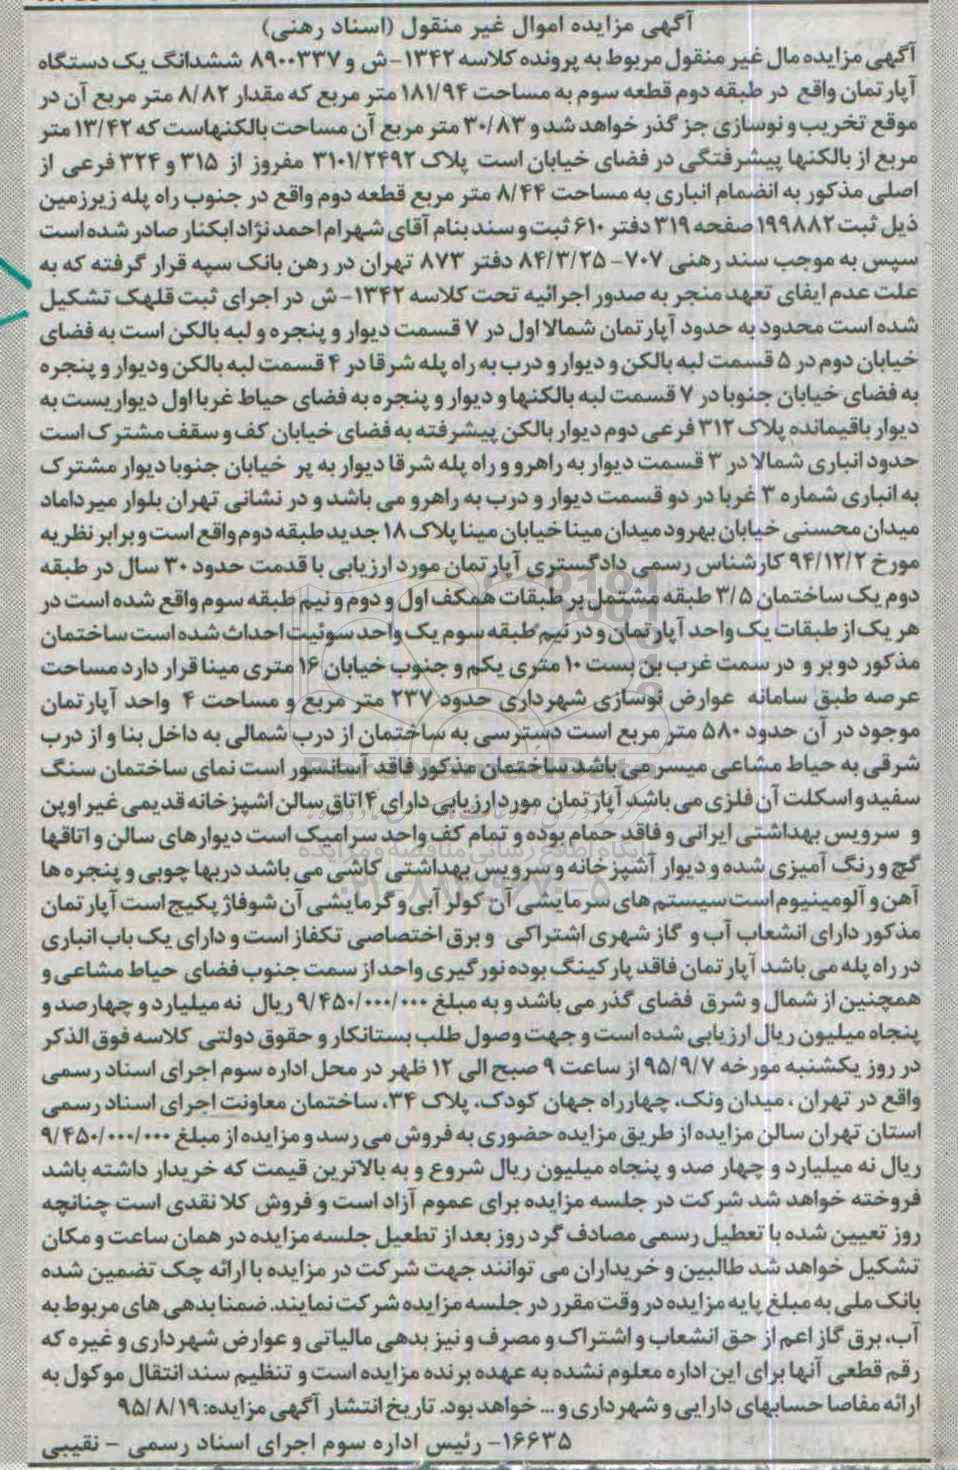 آگهی مزایده اموال غیر منقول (اسناد رهنی)
آگهی مزایده مال غیر منقول مربوط به پرونده کلاسه ۱۳۴۲-ش و ۸۹۰۰۳۳۷ ششدانگ یک دستگاه
آپارتمان واقع در طبقه دوم قطعه سوم به مساحت ۱۸۱/۹۴ متر مربع که مقدار ۸/۸۲ متر مربع آن در
موقع تخریب و نوسازی جز گذر خواهد شد و ۳۰/۸۳ متر مربع آن مساحت بالکنهاست که ۱۳/۴۲ متر
مربع از بالکنها پیشرفتگی در فضای خیابان است پلاک ۳۱۰۱/۲۴۹۲ مفروز از ۳۱۵ و ۳۲۴ فرعی از
اصلی مذکور به انضمام انباری به مساحت ۸/۴۴ متر مربع قطعه دوم واقع در جنوب راه پله زیرزمین
ذیل ثبت ۱۹۹۸۸۲ صفحه ۳۱۹ دفتر ۶۱۰ ثبت و سند بنام آقای شهرام احمد نژاد ابکنار صادر شده است
سپس به موجب سند رهنی ۷۰۷-۸۴/۳/۲۵ دفتر ۸۷۳ تهران در رهن بانک سپه قرار گرفته که به
علت عدم ایفای تعهد منجر به صدور اجرائیه تحت کلاسه ۱۳۴۲-ش در اجرای ثبت قلهک تشکیل
شده است محدود به حدود آپارتمان شمالا اول در ۷ قسمت دیوار و پنجره و لبه بالکن است به فضای
خیابان دوم در ۵ قسمت لبه بالکن و دیوار و درب به راه پله شرقا در ۴ قسمت لبه بالکن ودیوار و پنجره
به فضای خیابان جنوبا در ۷ قسمت لبه بالکنها و دیوار و پنجره به فضای حیاط غربا اول دیواریست به
دیوار باقیمانده پلاک ۳۱۲ فرعی دوم دیوار بالکن پیشرفته به فضای خیابان کف و سقف مشترک است
حدود انباری شمالا در ۳ قسمت دیوار به راهرو و راه پله شرقا دیوار به پر خیابان جنوبا دیوار مشترک
به انباری شماره ۳ غربا در دو قسمت دیوار و درب به راهرو می باشد و در نشانی تهران بلوار میرداماد
میدان محسنی خیابان بهرود میدان مینا خیابان مینا پلاک ۱۸ جدید طبقه دوم واقع است و برابر نظریه
مورخ ۹۴/۱۲/۲ کارشناس رسمی دادگستری آپارتمان مورد ارزیابی با قدمت حدود ۳۰ سال در طبقه
دوم یک ساختمان ۳/۵ طبقه مشتمل بر طبقات همکف اول و دوم و نیم طبقه سوم واقع شده است در
هر یک از طبقات یک واحد آپارتمان و در نیم طبقه سوم یک واحد سوئیت احداث شده است ساختمان
مذکور دو بر و در سمت غرب بن بست ۱۰ متری یکم و جنوب خیابان ۱۶ متری مینا قرار دارد مساحت
عرصه طبق سامانه عوارض نوسازی شهرداری حدود ۲۳۷ متر مربع و مساحت ۴ واحد آپارتمان
موجود در آن حدود ۵۸۰ متر مربع است دسترسی به ساختمان از درب شمالی به داخل بنا و از درب
شرقی به حیاط مشاعی میسر می باشد ساختمان مذکور فاقد آسانسور است نمای ساختمان سنگ
سفید و اسکلت آن فلزی می باشد آپارتمان مورد ارزیابی دارای ۴ اتاق سالن اشپزخانه قدیمی غیر اوپن
و سرویس بهداشتی ایرانی و فاقد حمام بوده و تمام کف واحد سرامیک است دیوارهای سالن و اتاقها
گچ و رنگ آمیزی شده و دیوار آشپزخانه و سرویس بهداشتی کاشی می باشد دربها چوبی و پنجره ها
آهن و آلومینیوم است سیستم های سرمایشی آن کولر آبی و گرمایشی آن شوفاژ پکیج است آپارتمان
مذکور دارای انشعاب آب و گاز شهری اشتراکی و برق اختصاصی تکفاز است و دارای یک باب انباری
در راه پله می باشد آپارتمان فاقد پارکینگ بوده نورگیری واحد از سمت جنوب فضای حیاط مشاعی و
همچنین از شمال و شرق فضای گذر می باشد و به مبلغ ۹/۴۵۰/۰۰۰/۰۰۰ ریال نه میلیارد و چهارصد و
پنجاه میلیون ریال ارزیابی شده است و جهت وصول طلب بستانکار و حقوق دولتی کلاسه فوق الذکر
در روز یکشنبه مورخه ۹۵/۹/۷ از ساعت ۹ صبح الی ۱۲ ظهر در محل اداره سوم اجرای اسناد رسمی
واقع در تهران ، میدان ونک، چهارراه جهان کودک، پلاک ۳۴، ساختمان معاونت اجرای اسناد رسمی
استان تهران سالن مزایده از طریق مزایده حضوری به فروش می رسد و مزایده از مبلغ ۹/۴۵۰/۰۰۰/۰۰۰
ریال نه میلیارد و چهار صد و پنجاه میلیون ریال شروع و به بالاترین قیمت که خریدار داشته باشد
فروخته خواهد شد شرکت در جلسه مزایده برای عموم آزاد است و فروش کلا نقدی است چنانچه
روز تعیین شده با تعطیل رسمی مصادف گردد روز بعد از تعطیل جلسه مزایده در همان ساعت و مکان
تشکیل خواهد شد طالبین و خریداران می توانند جهت شرکت در مزایده با ارائه چک تضمین شده
بانک ملی به مبلغ پایه مزایده در وقت مقرر در جلسه مزایده شرکت نمایند. ضمنا بدهی های مربوط به
آب، برق گاز اعم از حق انشعاب و اشتراک و مصرف و نیز بدهی مالیاتی و عوارض شهرداری و غیره که
رقم قطعی آنها برای این اداره معلوم نشده به عهده برنده مزایده است و تنظیم سند انتقال موکول به
ارائه مفاصا حسابهای دارایی و شهرداری و ... خواهد بود. تاریخ انتشار آگهی مزایده: ۹۵/۸/۱۹
۱۶۶۳۵- رئیس اداره سوم اجرای اسناد رسمی - نقیبی